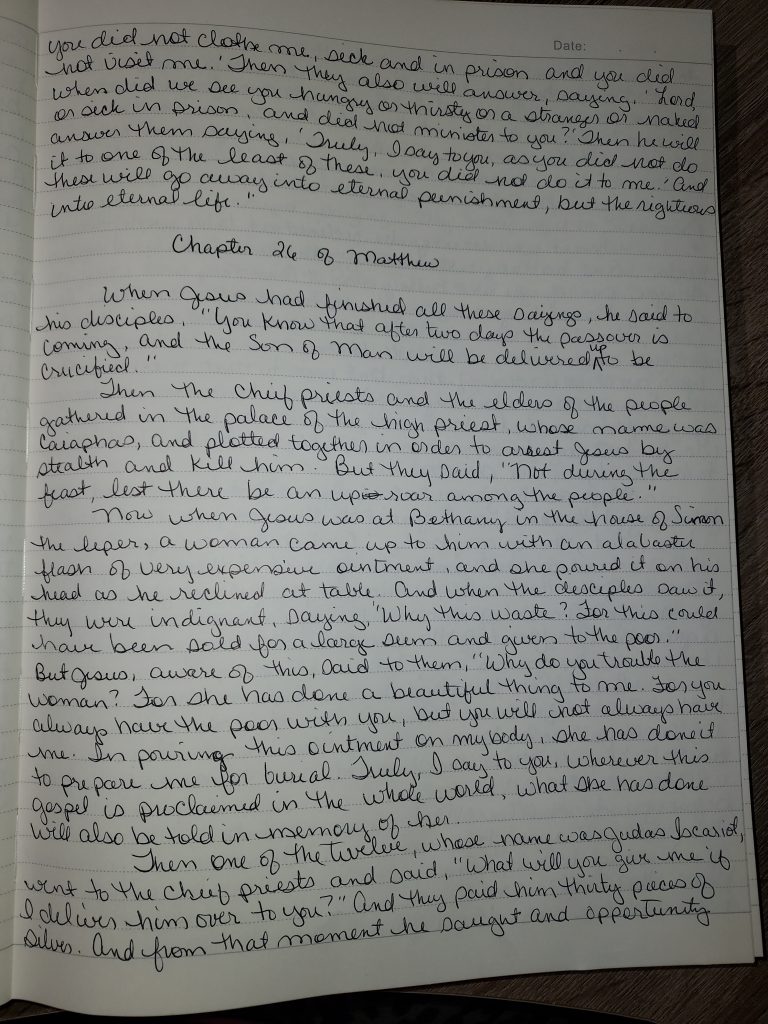 Date:
you did not clothe me, sick and in prison and you did
not visit me.' Then they also will answer, saying. 'Lord,
when did we see you hungry or thirsty or a stranger or naked
or sick in prison, and did not minister to you?' Then he will
answer them saying, 'Truly, I say to you, as you did not do
it to one of the least of these, you did not do it to me.' And
these will go away into eternal punishment, but the righteous
into eternal life."
Chapter 26 of Matthew
When Jesus had finished all these sayings, he said to
his disciples, "You know that after two days the passover is
coming, and the Son of Man will be delivered up to be
crucified."
Then the chief priests and the elders of the people
gathered in the palace of the high priest, whose name was
Caiaphas, and plotted together in order to arrest Jesus by
stealth and kill him. But they said, "Not during the
feast, lest there be an uproar among the people."
Now when Jesus was at Bethany in the house of Simon
the leper, a woman came up to him with an alabaster
flask of very expensive ointment, and she poured it on his
head as he reclined at table. And when the desciples saw it,
they were indignant, saying, "Why this waste? For this could
have been sold for a large sum and given to the poor."
But Jesus, aware of this, said to them, "Why do you trouble the
woman? For she has done a beautiful thing to me. For you
always have the poor with you, but you will not always have
me. In pouring this ointment on my body, she has done it
to prepare me for burial. Truly, I say to you, wherever this
gospel is proclaimed in the whole world, what she has done
will also be told in memory of her.
Then one of the twelve, whose name was Judas Iscariot,
went to the chief priests and said, "What will you give me if
I deliver him over to you?" And they paid him thirty pieces of
silver. And from that moment he sought and opportunity